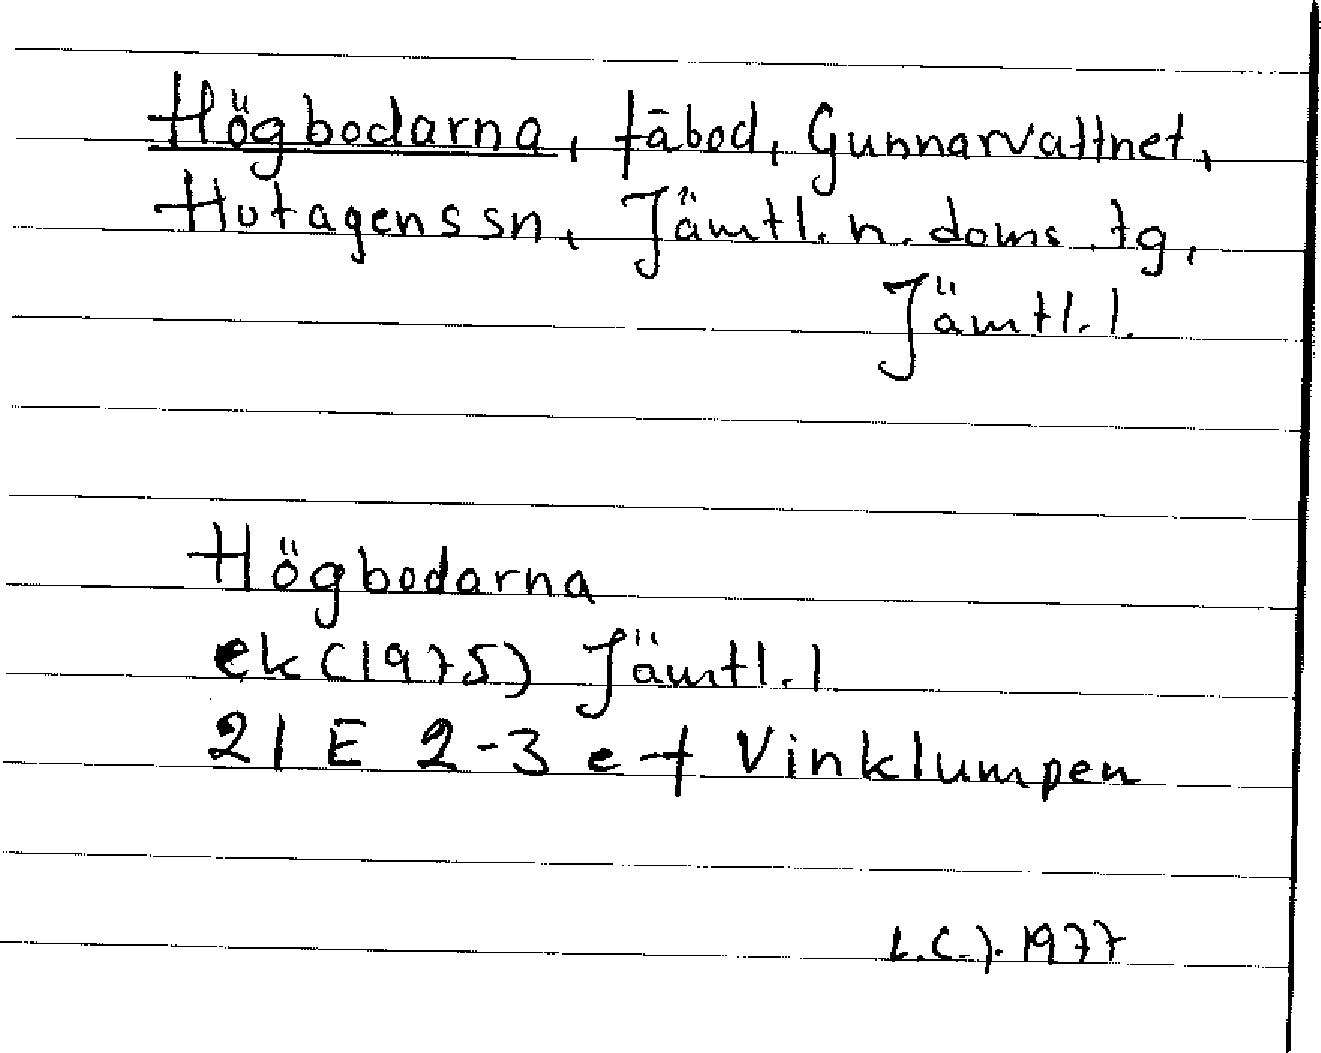 Högbodarna, fäbod, Gunnarvattnet,
Hotagens sn, Jämtl. n. doms. tg,
Jämtl. l.
Högbodarna
ek (1975) Jämtl. l
21 E 2-3 e-f Vinklumpen
L.C.J. 1977